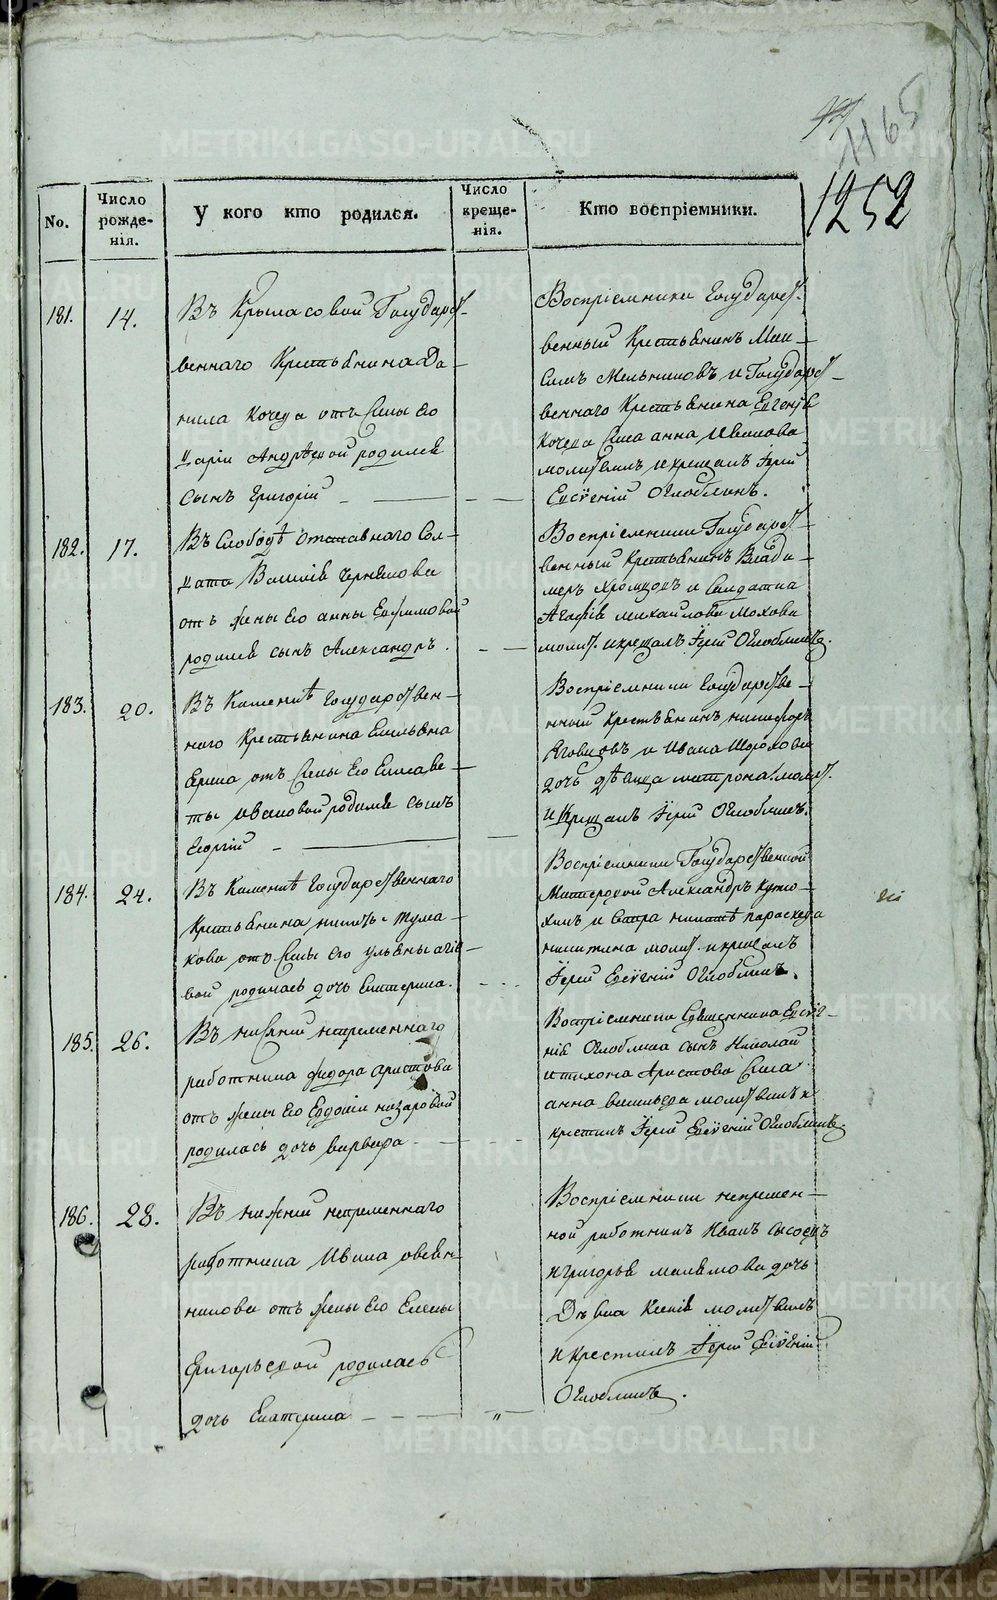 1165
1252
No.
Число рожде-
нія.
У кого кто родился.
Число креще-
нія.
Кто воспріемники.
181. 14. Въ Крыласовой Государст-
веннаго Крестьянина Да-
нила Кочева отъ жены его
Дарьи Андрѣевой родился
сынъ Григорій
Воспріемники Государст-
венный Крестьянинъ Мак-
симъ Мельниковъ и Государст-
веннаго Крестьянина Евгенія
Кочева жена анна Иванова
молитвилъ и крещалъ Іерей
Евгеній Оглоблинъ.
182. 17. Въ Слободѣ отставнаго Сол-
дата Василія Чернякова
отъ жены его анны Ефимовой
родился сынъ Александръ.
Воспріемники Государст-
венный Крестьянинъ Влади-
меръ Хромцовъ и Солдатка
Агафія михайлова Мохова
молит. и крещалъ Іерей Оглоблинъ.
183. 20. Въ Каменкѣ Государствен-
наго Крестьянина Емельяна
отъ жены его Елисаве-
ты ивановой родился сынъ
Георгій
Воспріемники Государстве-
нный Крестьянинъ никифоръ
и Ивана
дочь дѣвица матрона молит.
и Крещалъ Іерей Оглоблинъ.
184. 24. Въ Каменкѣ Государственнаго
Крестьянина
кова отъ жены его ульяны
вой родилась дочь Екатерина.
Воспріемники Государственной
Мастеровой Александръ
и параскева
молит. и крещалъ
Іерей Евгеній Оглоблинъ.
185. 26. Въ нижней непременнаго
работника Федора аристова
отъ жены его Евдокіи назаровой
родилась дочь варвара
Воспріемники Священника Евге-
нія Оглоблина сынъ Николай
и тихона Аристова жена
анна васильева молитвилъ и
крестилъ Іерей Евгеній Оглоблинъ.
186. 28. Въ нижней непременнаго
работника Ивана овсян-
никова отъ жены его Елены
Григорьевой родилась
дочь Екатерина
Воспріемники непремен-
ной работникъ Иванъ сысоевъ
и Григорья дочь
Дѣвка Ксенія молитвилъ
и Крестилъ Іерей Евгеній
Оглоблинъ.
METRIKI.GASO-URAL.RU